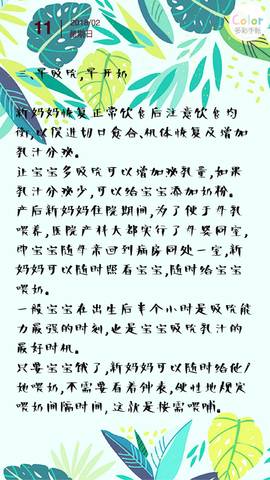 11
2018/02
星期日
Color
多彩手帐
三、早吸吮,早开奶
新妈妈恢复正常饮食后注意饮食均
衡,以促进切口愈合、机体恢复及增加
乳汁分泌。
让宝宝多吸吮可以增加泌乳量,如果
乳汁分泌少,可以给宝宝添加奶粉。
产后新妈妈住院期间,为了便于牛乳
喂养,医院产科大都实行了牛婴同室,
即宝宝随牛亲回到病房同处一室,新
妈妈可以随时照看宝宝,随时给宝宝
喂奶。
一般宝宝在出生后半个小时是吸吮能
力最强的时刻,也是宝宝吸吮乳汁的
最好时机。
只要宝宝饿了,新妈妈可以随时给他/
她喂奶,不需要看着钟表,硬性地规定
喂奶间隔时间,这就是按需喂哺。